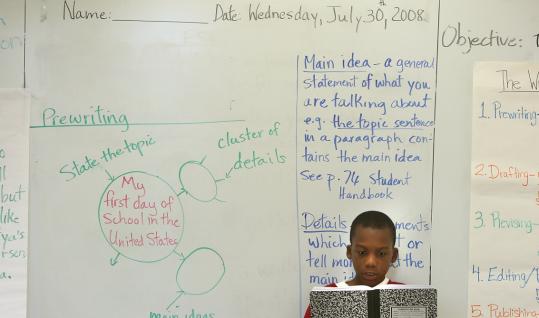 Name:
Date: Wednesday, July 30th, 2008
Objective:
Prewriting
State the topic
cluster of
details
My
first day of
School in the
United States
main ideas
Main idea - a general
statement of what you
are talking about
e.g. the topic sentence
in a paragraph con-
tains the main idea
See p. 74 Student
Handbook
Details
which
or
tell the
main
The
1. Prewriting-
2. Drafting-
3. Revising-
4. Editing/
5. Publishing
but
like